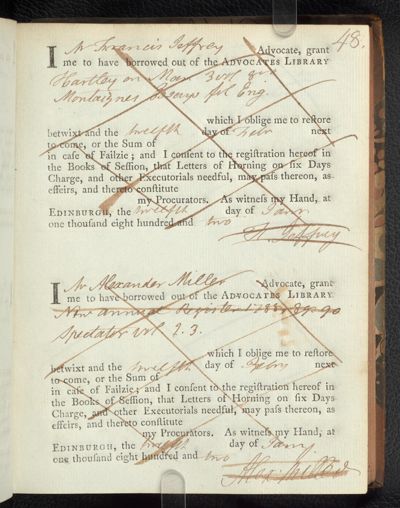 48.
I Mr Francis Jeffrey Advocate, grant
me to have borrowed out of the ADVOCATES LIBRARY
Hartley on Man 3 vol
Montaignes Essays Eng.
which I oblige me to reſtore
betwixt and the twelfth day of Febr next
to come, or the Sum of
in caſe of Failzie; and I conſent to the regiſtration hereof in
the Books of Seſſion, that Letters of Horning on ſix Days
Charge, and other Executorials needful, may paſs thereon, as
effeirs, and thereto conſtitute
my Procurators. As witneſs my Hand, at
EDINBURGH, the twelfth day of Janry
one thouſand eight hundred and two
F. Jeffrey
I Mr Alexander Miller Advocate, grant
me to have borrowed out of the ADVOCATES LIBRARY
New annual Register 1788 89 90
Spectator vol 2. 3.
which I oblige me to reſtore
betwixt and the twelfth day of Febry next
to come, or the Sum of
in caſe of Failzie; and I conſent to the regiſtration hereof in
the Books of Seſſion, that Letters of Horning on ſix Days
Charge, and other Executorials needful, may paſs thereon, as
effeirs, and thereto conſtitute
my Procurators. As witneſs my Hand, at
EDINBURGH, the twelfth day of Janry
one thouſand eight hundred and two
Alex Miller